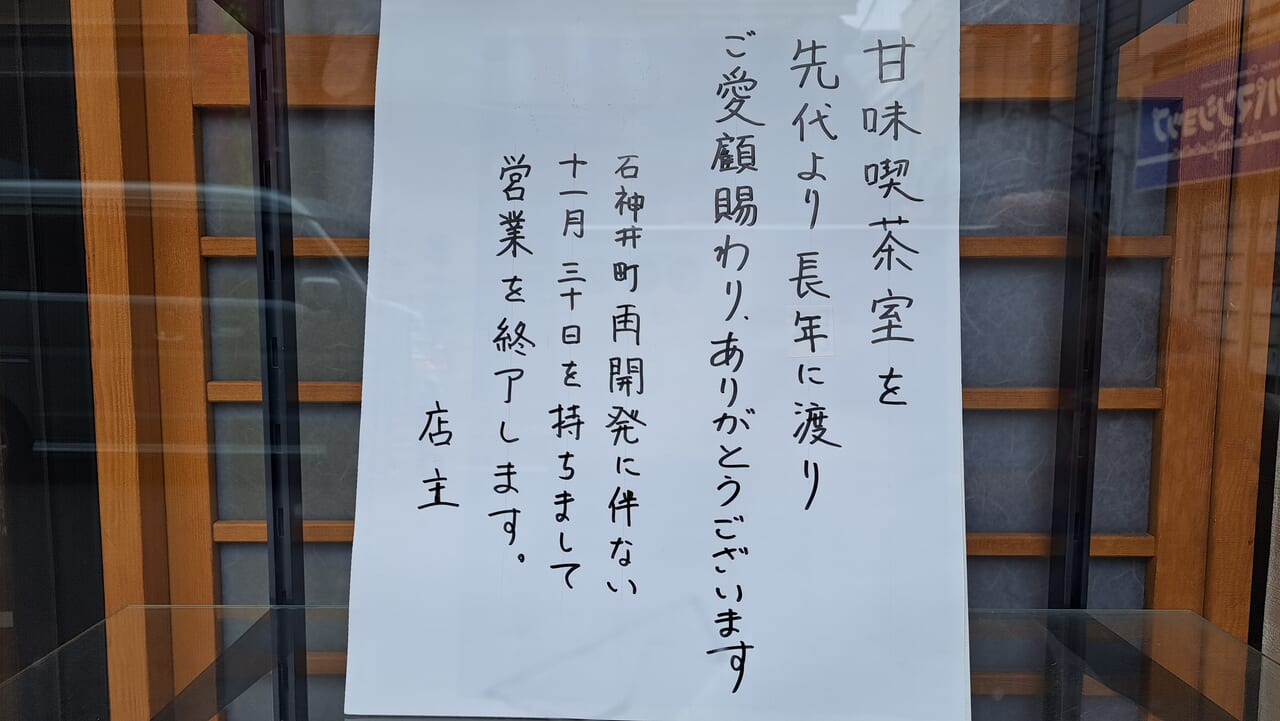 甘味喫茶室を
先代より長年に渡り
ご愛顧賜わり、ありがとうございます
石神井町再開発に伴ない
十一月三十日を持ちまして
営業を終了します。
店主